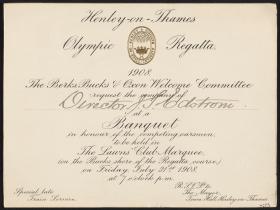 Henley-on-Thames
Olympic Regatta
1908
The Berks, Bucks & Oxon Welcome Committee
request the company of
Director J. S. Edström
at a
Banquet
in honour of the competing oarsmen
to be held in
The Lawns Club Marquee,
(on the Bucks shore of the Regatta course,)
on Friday July 31st 1908,
at 7 o'clock p.m.
Special late
Train Service.
R.S.V.P. to
The Mayor,
Town Hall, Henley-on-Thames